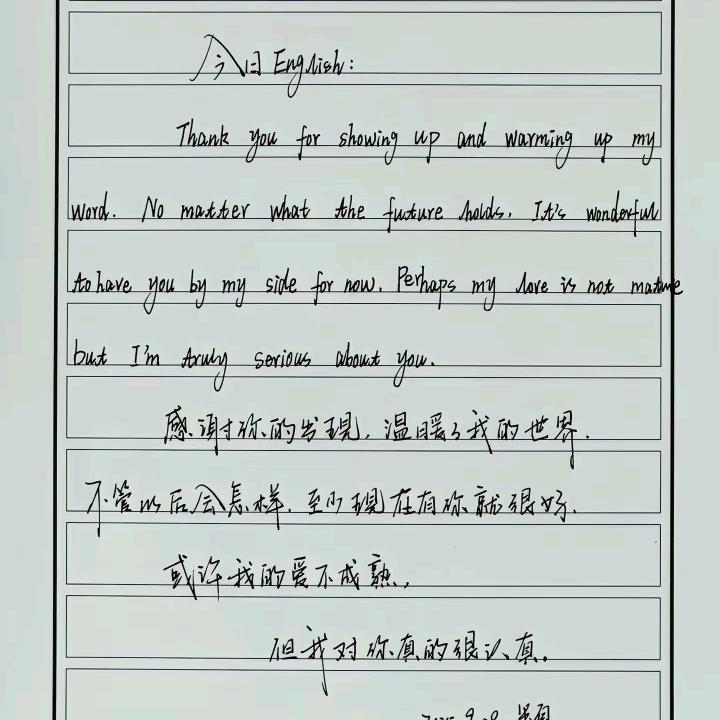 今日English:
Thank you for showing up and warming up my
word. No matter what the future holds. It's wonderful
to have you by my side for now. Perhaps my love is not mature
but I'm truly serious about you.
感谢你的出现,温暖了我的世界.
不管以后会怎样.至少现在有你就很好.
或许我的爱不成熟,
但我对你真的很认真.